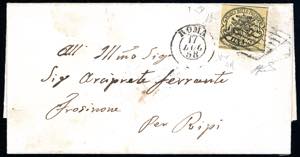 ROMA
17
LUG
58
All' Illmo Sig
Sig Arciprete Ferrante
Frosinone
Per Ripi